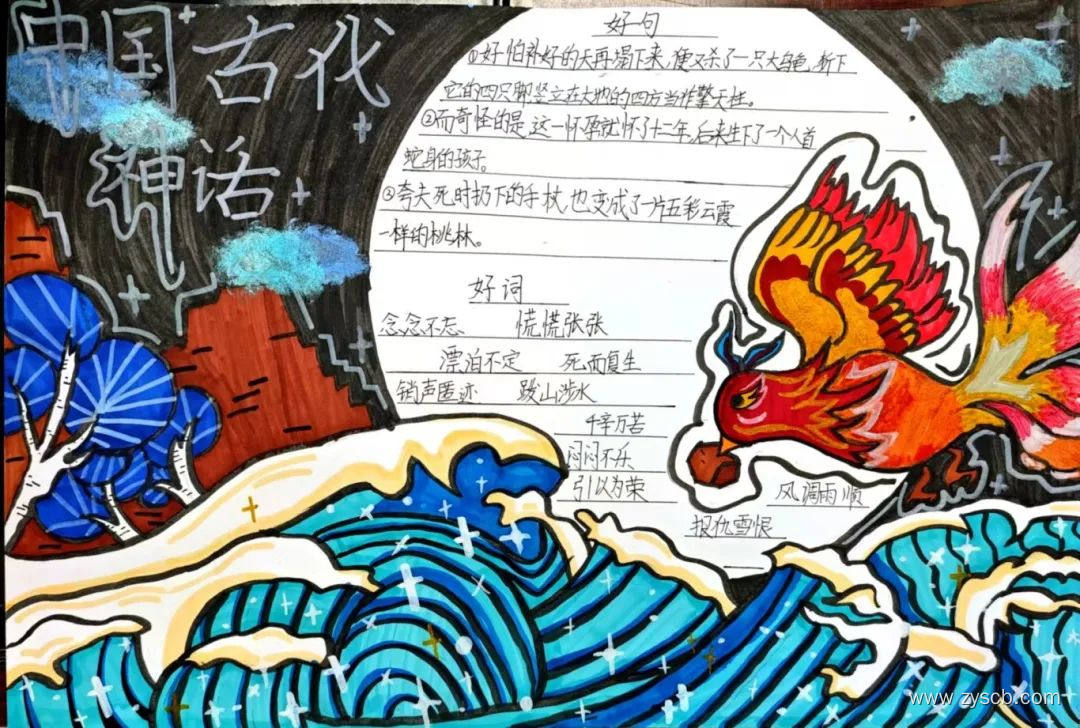 中国古代
神话
好句
①好怕补好的天再塌下来,便又杀了一只大乌龟,折下
它的四只脚竖立在大地的四方当作擎天柱。
②而奇怪的是这一怀孕就怀了十二年,后来生下了一个人首
蛇身的孩子。
③夸夫死时扔下的手杖,也变成了一片五彩云霞
一样的桃林。
好词
念念不忘 慌慌张张
漂泊不定 死而复生
销声匿迹 跋山涉水
千辛万苦
闷闷不乐
引以为荣
风调雨顺
报仇雪恨
www.zyscb.com